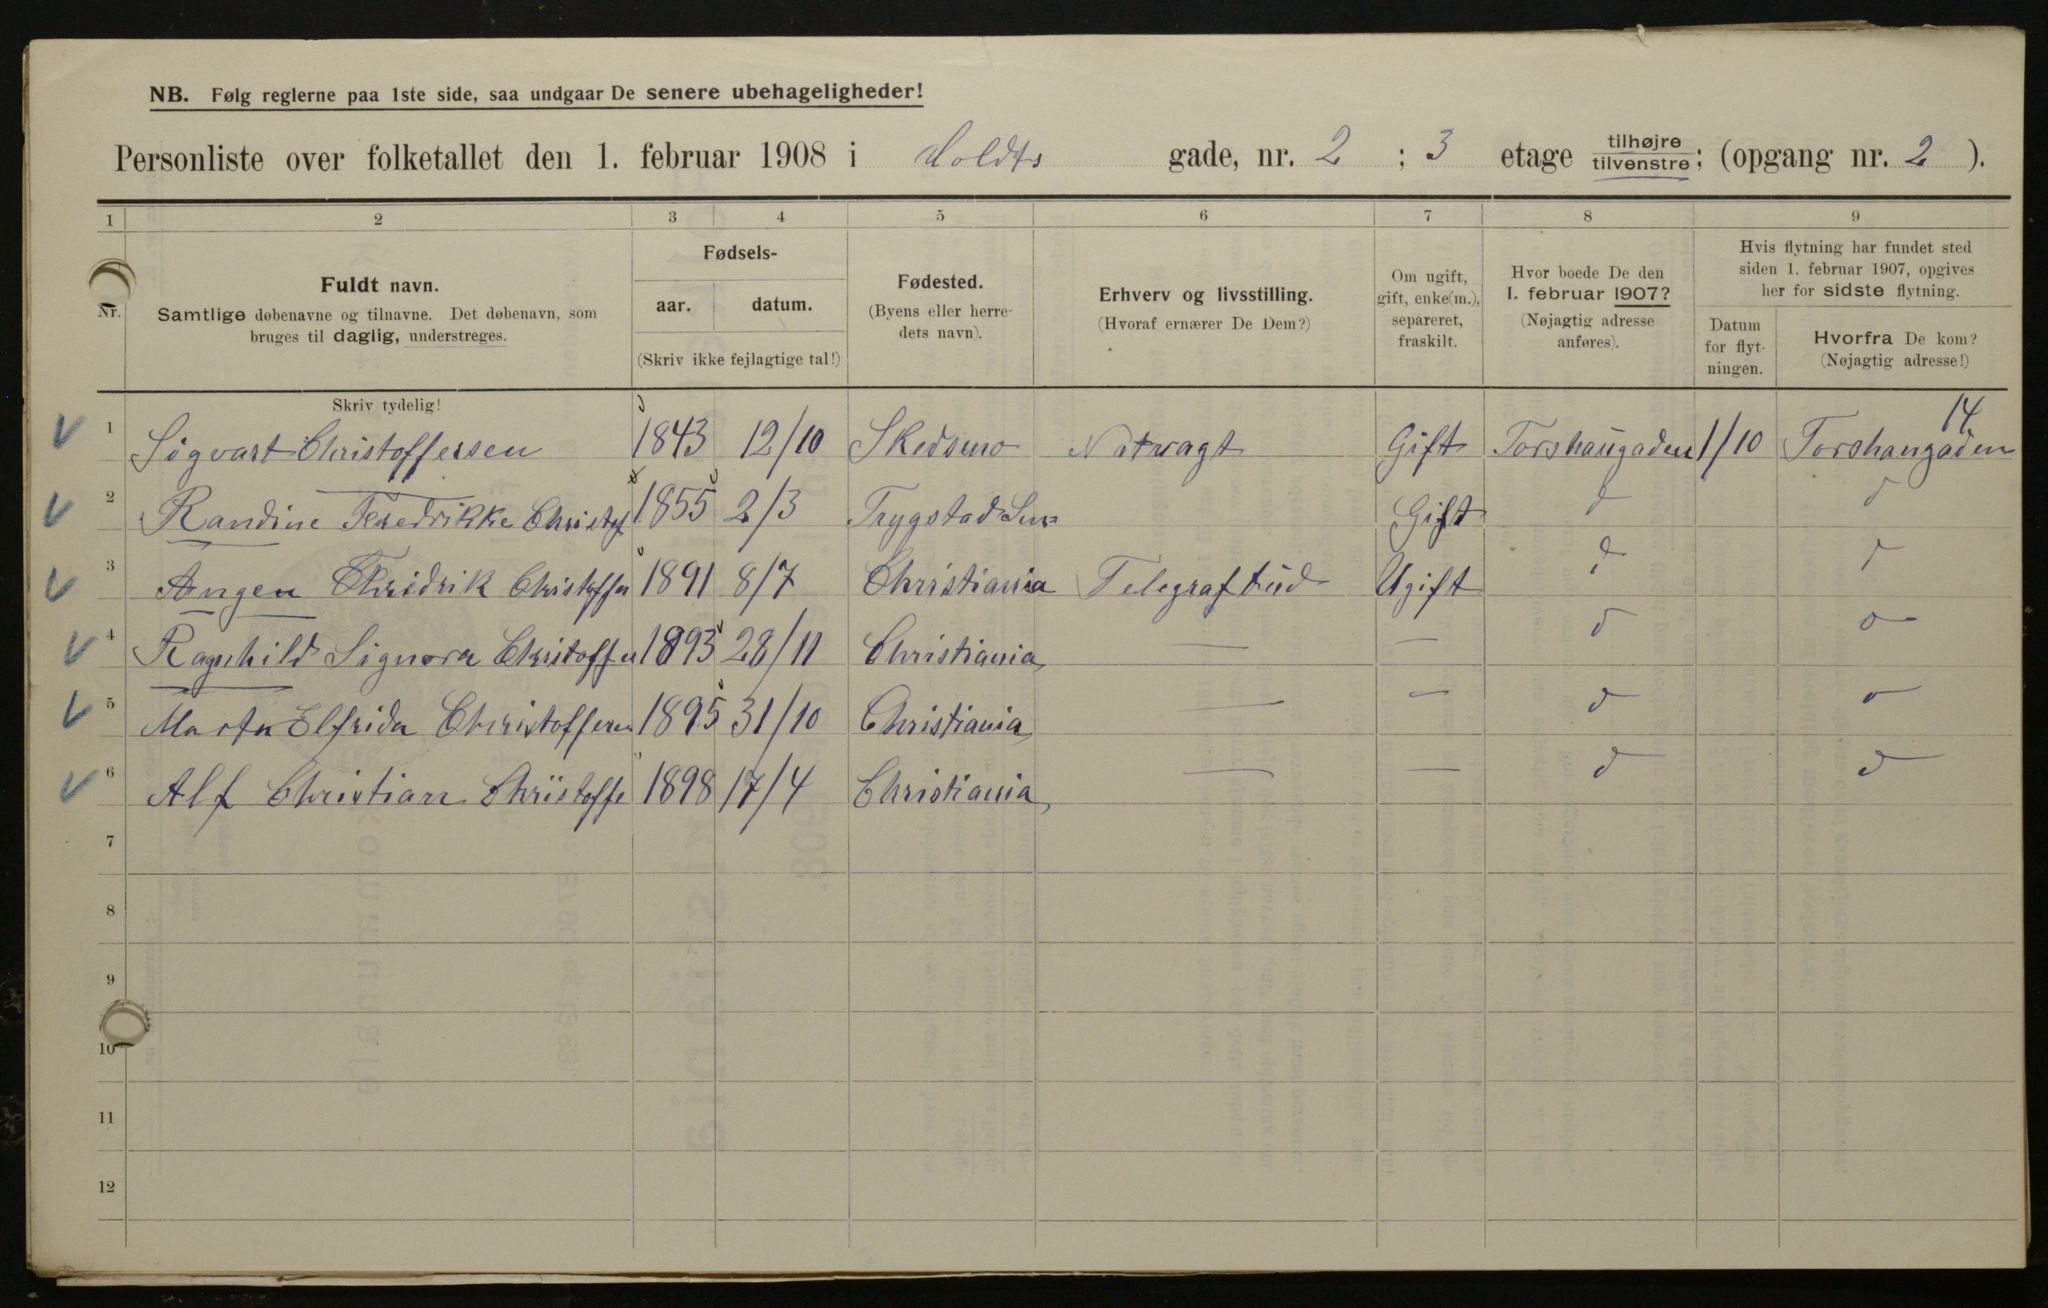 NB. Følg reglerne paa 1ste side, saa undgaar De senere ubehageligheder!
Personliste over folketallet den 1. februar 1908 i Holdts gade, nr. 2 ; 3 etage tilhøjre tilvenstre; (opgang nr. 2 ).
1 2 3 4 5 6 7 8 9
Nr.
Fuldt navn.
Samtlige døbenavne og tilnavne. Det døbenavn, som
bruges til daglig, understreges.
Skriv tydelig!
Fødsels-
aar. datum.
(Skriv ikke fejlagtige tal!)
Fødested.
(Byens eller herre-
dets navn).
Erhverv og livsstilling.
(Hvoraf ernærer De Dem?)
Om ugift,
gift, enke(m.),
separeret,
fraskilt.
Hvor boede De den
1. februar 1907?
(Nøjagtig adresse
anføres).
Hvis flytning har fundet sted
siden 1. februar 1907, opgives
her for sidste flytning.
Datum
for flyt-
ningen.
Hvorfra De kom?
(Nøjagtig adresse!)
14
1 Sigvart Christoffersen 1843 12/10 Skedsmo Natvagt Gift Torshaugaden 1/10 Torshaugaden
2 Randine Fredrikke Christof 1855 2/3 Trygstad Sm Gift d d
3 Angen Fhridrik Christoffer 1891 8/7 Christiania Telegrafbud Ugift d d
4 Ragnhild Signora Christoffer 1893 28/11 Christiania — — d o
5 Marta Elfrida Christofferen 1895 31/10 Christiania — — d o
6 Alf Christian Christoffe 1898 17/4 Christiania — — d d
7
8
9
10
11
12